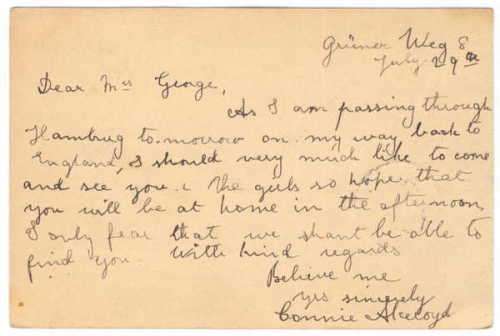 Grüner Weg 8
July 29th
Dear Mrs George,
As I am passing through
Hamburg to-morrow on my way back to
England, I should very much like to come
and see you & the girls so hope that
you will be at home in the afternoon,
I only fear that we shant be able to
find you. With kind regards
Believe me
yrs sincerely
Connie